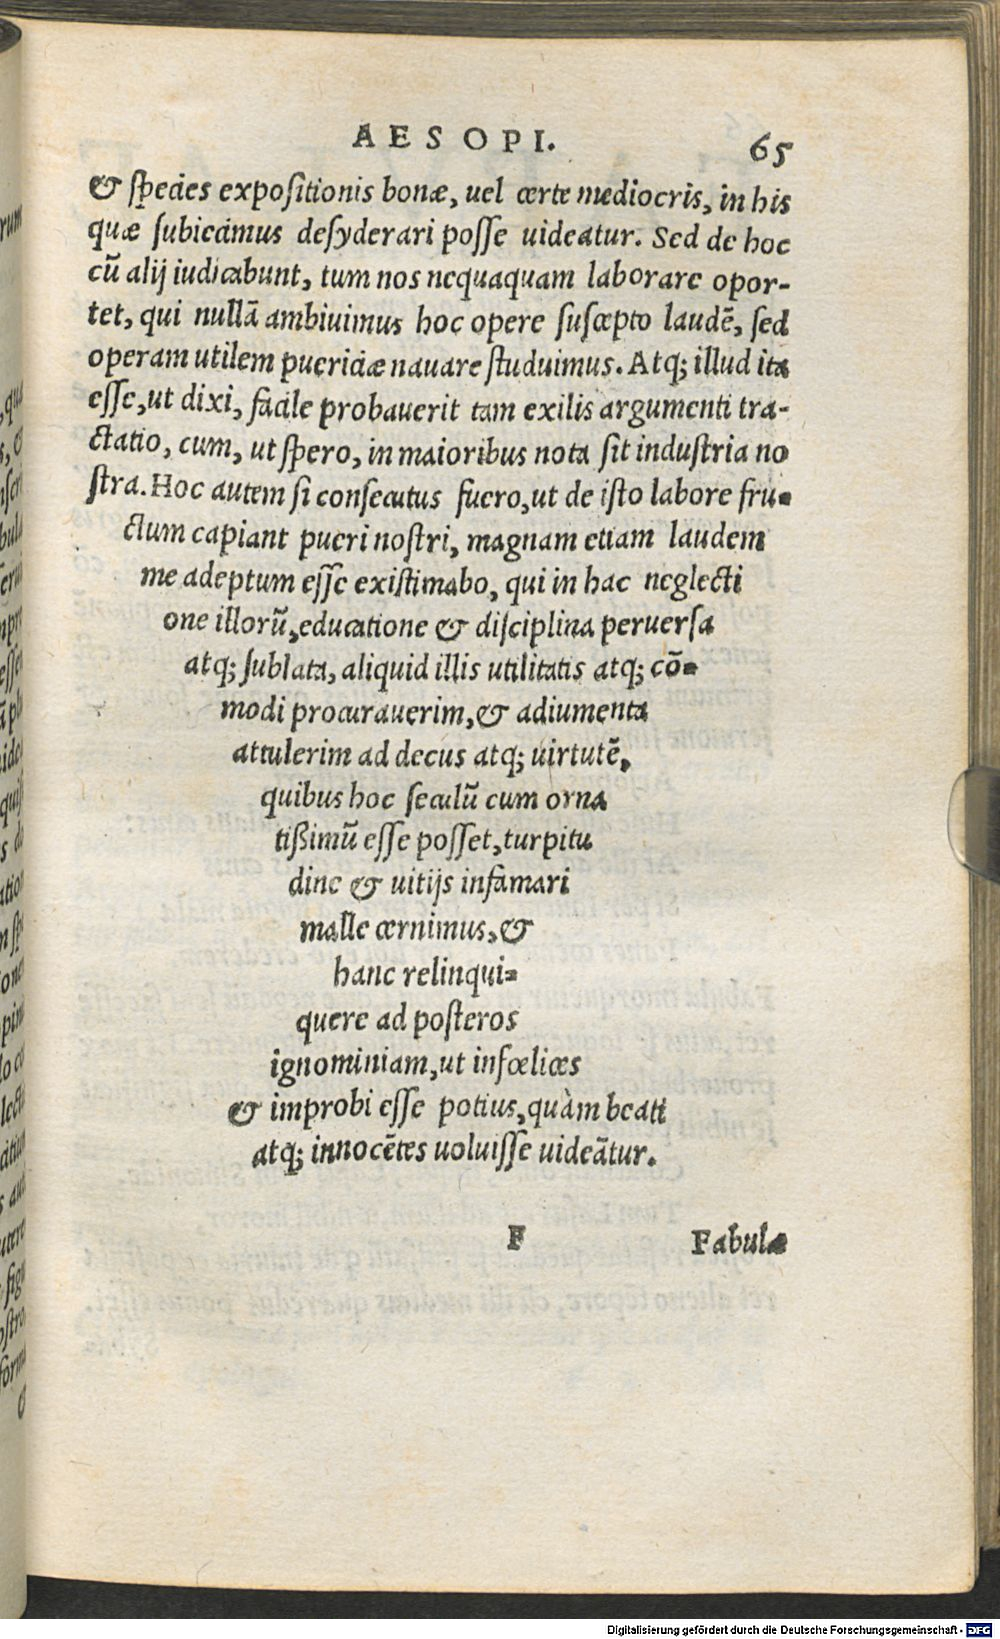 AESOPI. 65
& ſpecies expoſitionis bonæ, uel certe mediocris, in his
quæ ſubiecimus deſyderari poſſe uideatur. Sed de hoc
cū alij iudicabunt, tum nos nequaquam laborare opor-
tet, qui nullā ambiuimus hoc opere ſuſcepto laudē, ſed
operam utilem puericiæ nauare ſtuduimus. Atq; illud ita
eſſe, ut dixi, facile probauerit tam exilis argumenti tra-
ctatio, cum, ut ſpero, in maioribus nota ſit induſtria no
ſtra. Hoc autem ſi conſecutus fuero, ut de iſto labore fru-
ctum capiant pueri noſtri, magnam etiam laudem
me adeptum eſſe exiſtimabo, qui in hac neglecti
one illorū, educatione & diſciplina peruerſa
atq; ſublata, aliquid illis utilitatis atq; cō-
modi procurauerim, & adiumenta
attulerim ad decus atq; uirtutē,
quibus hoc ſeculū cum orna
tißimū eſſe poſſet, turpitu
dine & uitijs infamari
malle cernimus, &
hanc relinqui-
quere ad poſteros
ignominiam, ut infœlices
& improbi eſſe potius, quàm beati
atq; innocētes uoluiſſe uideātur.
F Fabulæ
Digitalisierung gefördert durch die Deutsche Forschungsgemeinschaft - DFG